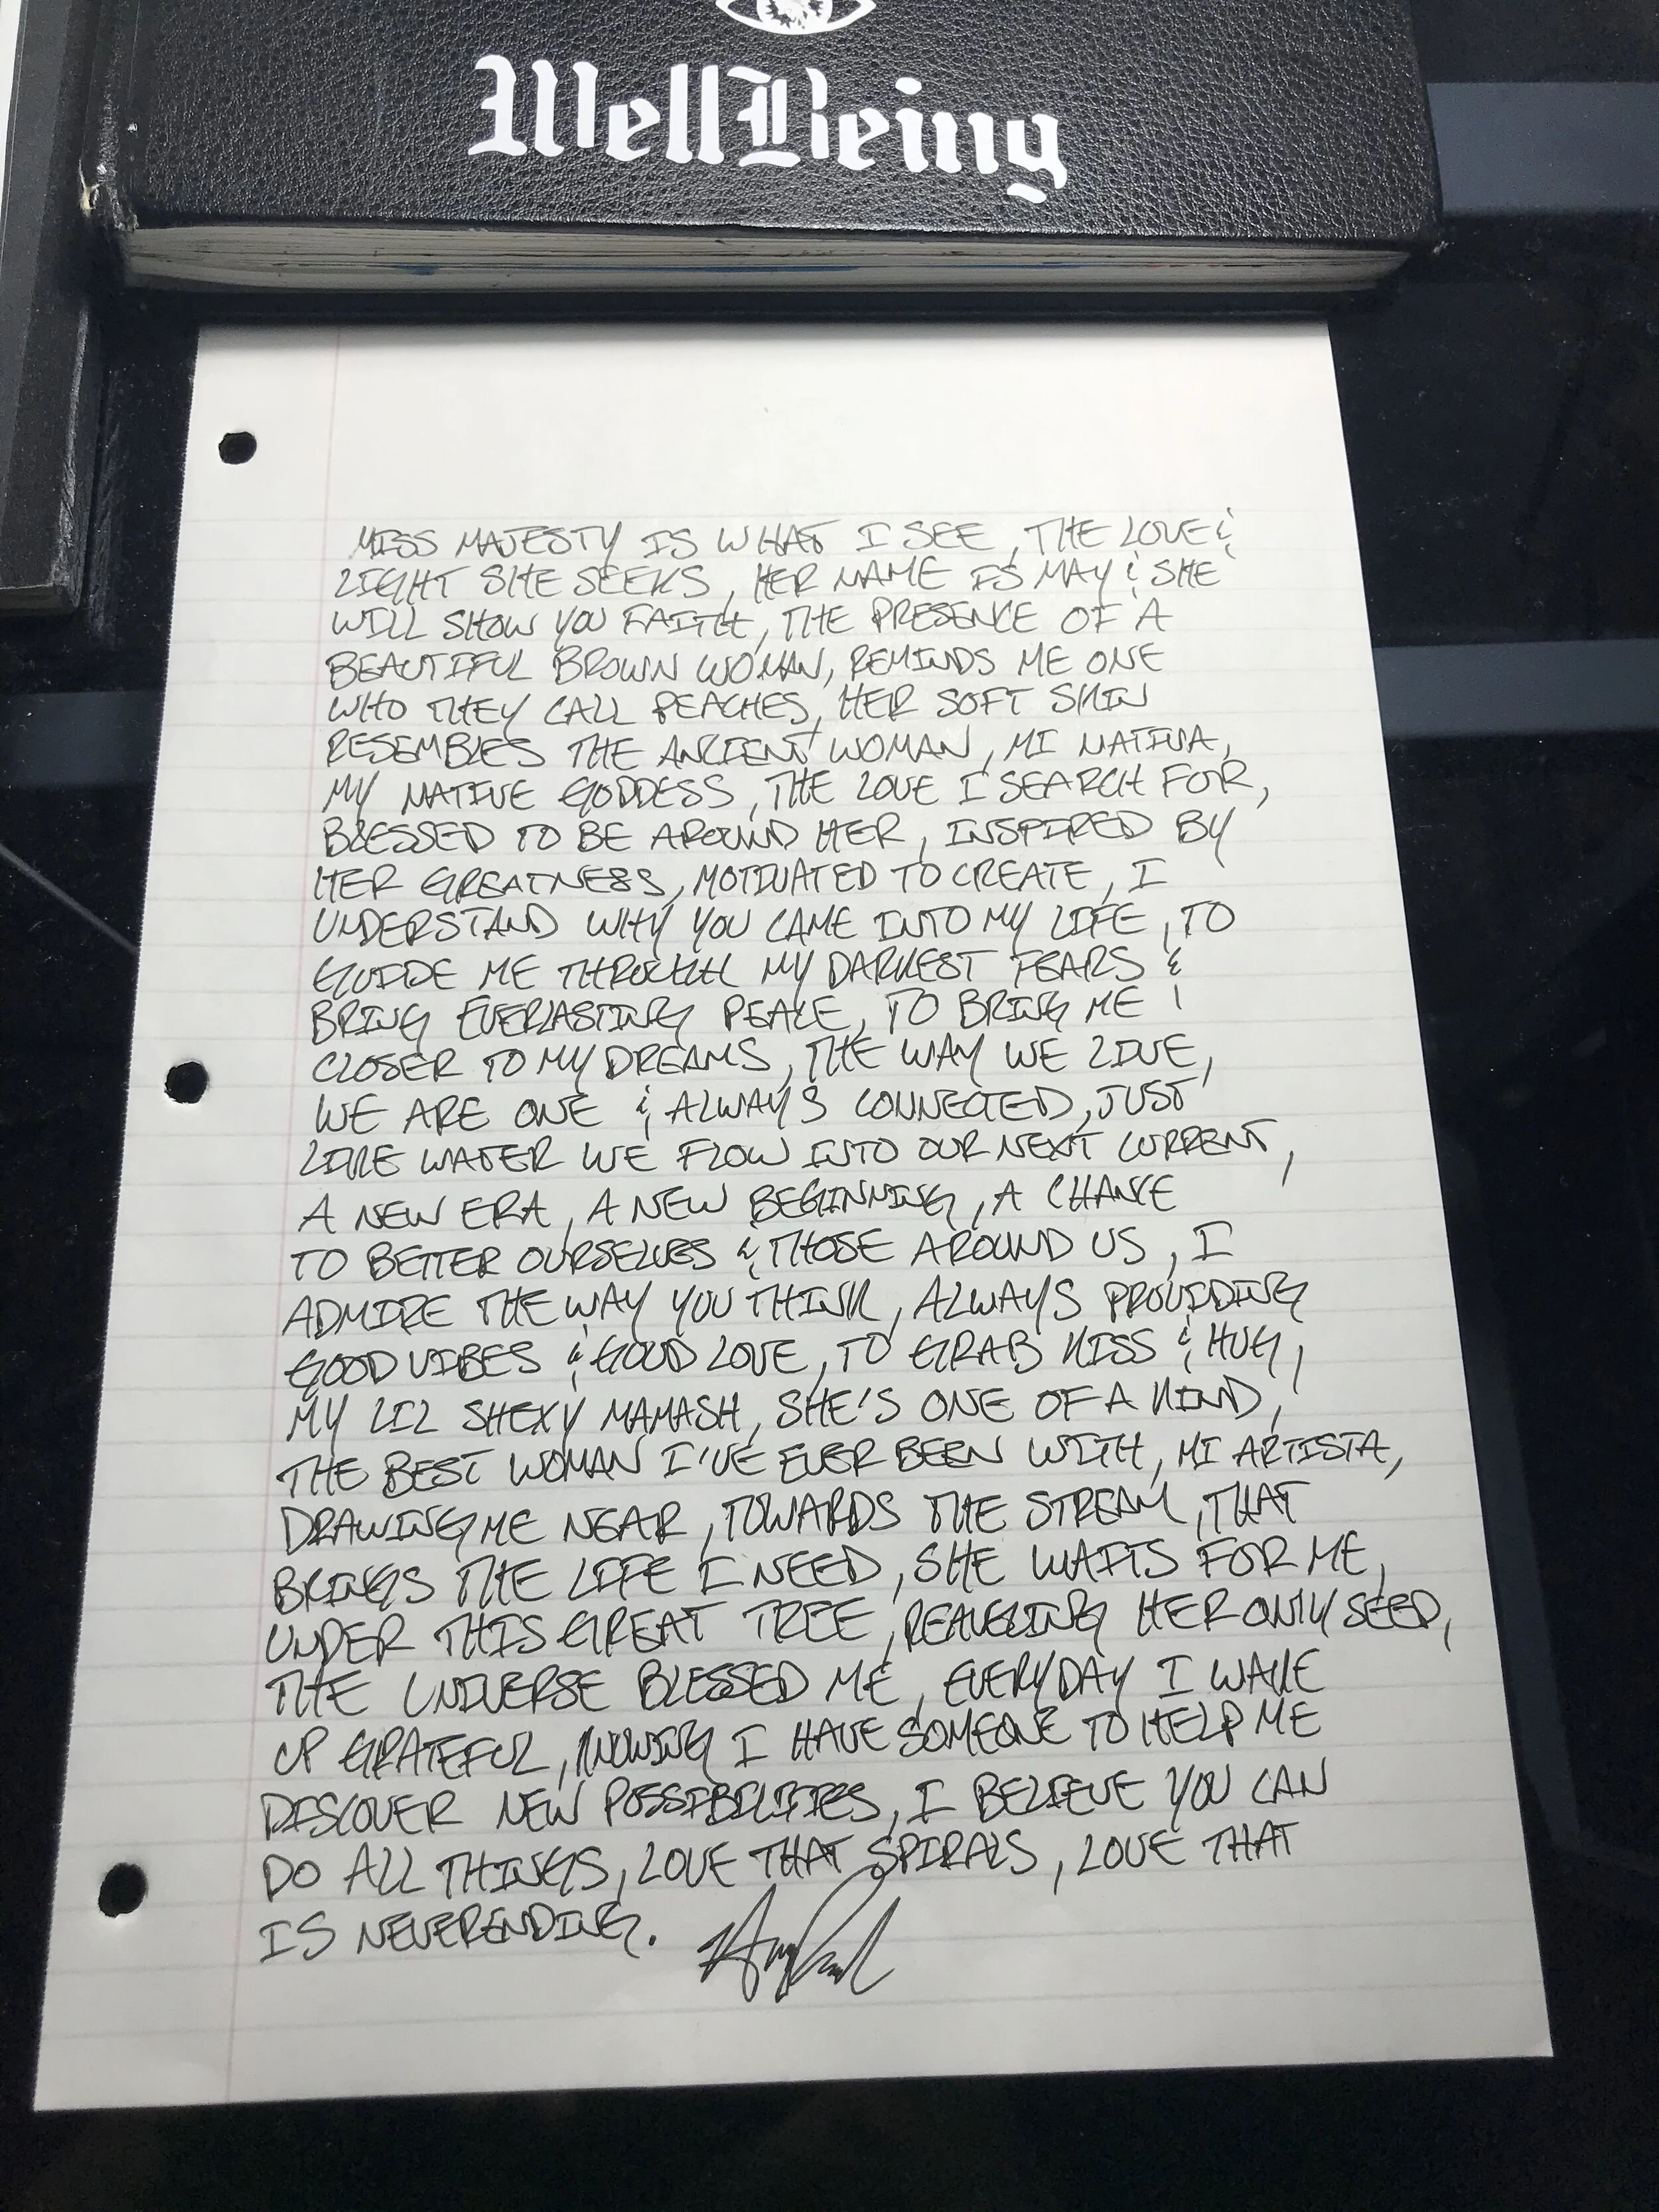 WellBeing
MISS MAJESTY IS WHAT I SEE, THE LOVE &
LIGHT SHE SEEKS, HER NAME IS MAY & SHE
WILL SHOW YOU FAITH, THE PRESENCE OF A
BEAUTIFUL BROWN WOMAN, REMINDS ME ONE
WHO THEY CALL PEACHES, HER SOFT SKIN
RESEMBLES THE ANCIENT WOMAN, MI NATIVA,
MY NATIVE GODDESS, THE LOVE I SEARCH FOR,
BLESSED TO BE AROUND HER, INSPIRED BY
HER GREATNESS, MOTIVATED TO CREATE, I
UNDERSTAND WHY YOU CAME INTO MY LIFE, TO
GUIDE ME THROUGH MY DARKEST FEARS &
BRING EVERLASTING PEACE, TO BRING ME
CLOSER TO MY DREAMS, THE WAY WE LIVE,
WE ARE ONE & ALWAYS CONNECTED, JUST
LIKE WATER WE FLOW INTO OUR NEXT CURRENT,
A NEW ERA, A NEW BEGINNING, A CHANCE
TO BETTER OURSELVES & THOSE AROUND US, I
ADMIRE THE WAY YOU THINK, ALWAYS PROVIDING
GOOD VIBES & GOOD LOVE, TO GRAB KISS & HUG,
MY LIL SHEXY MAMASH, SHE'S ONE OF A KIND,
THE BEST WOMAN I'VE EVER BEEN WITH, MI ARTISTA,
DRAWING ME NEAR, TOWARDS THE STREAM, THAT
BRINGS THE LIFE I NEED, SHE WAITS FOR ME,
UNDER THIS GREAT TREE, REAVELING HER ONLY SEED,
THE UNIVERSE BLESSED ME, EVERYDAY I WAKE
UP GRATEFUL, KNOWING I HAVE SOMEONE TO HELP ME
DISCOVER NEW POSSIBILITIES, I BELIEVE YOU CAN
DO ALL THINGS, LOVE THAT SPIRALS, LOVE THAT
IS NEVERENDING.